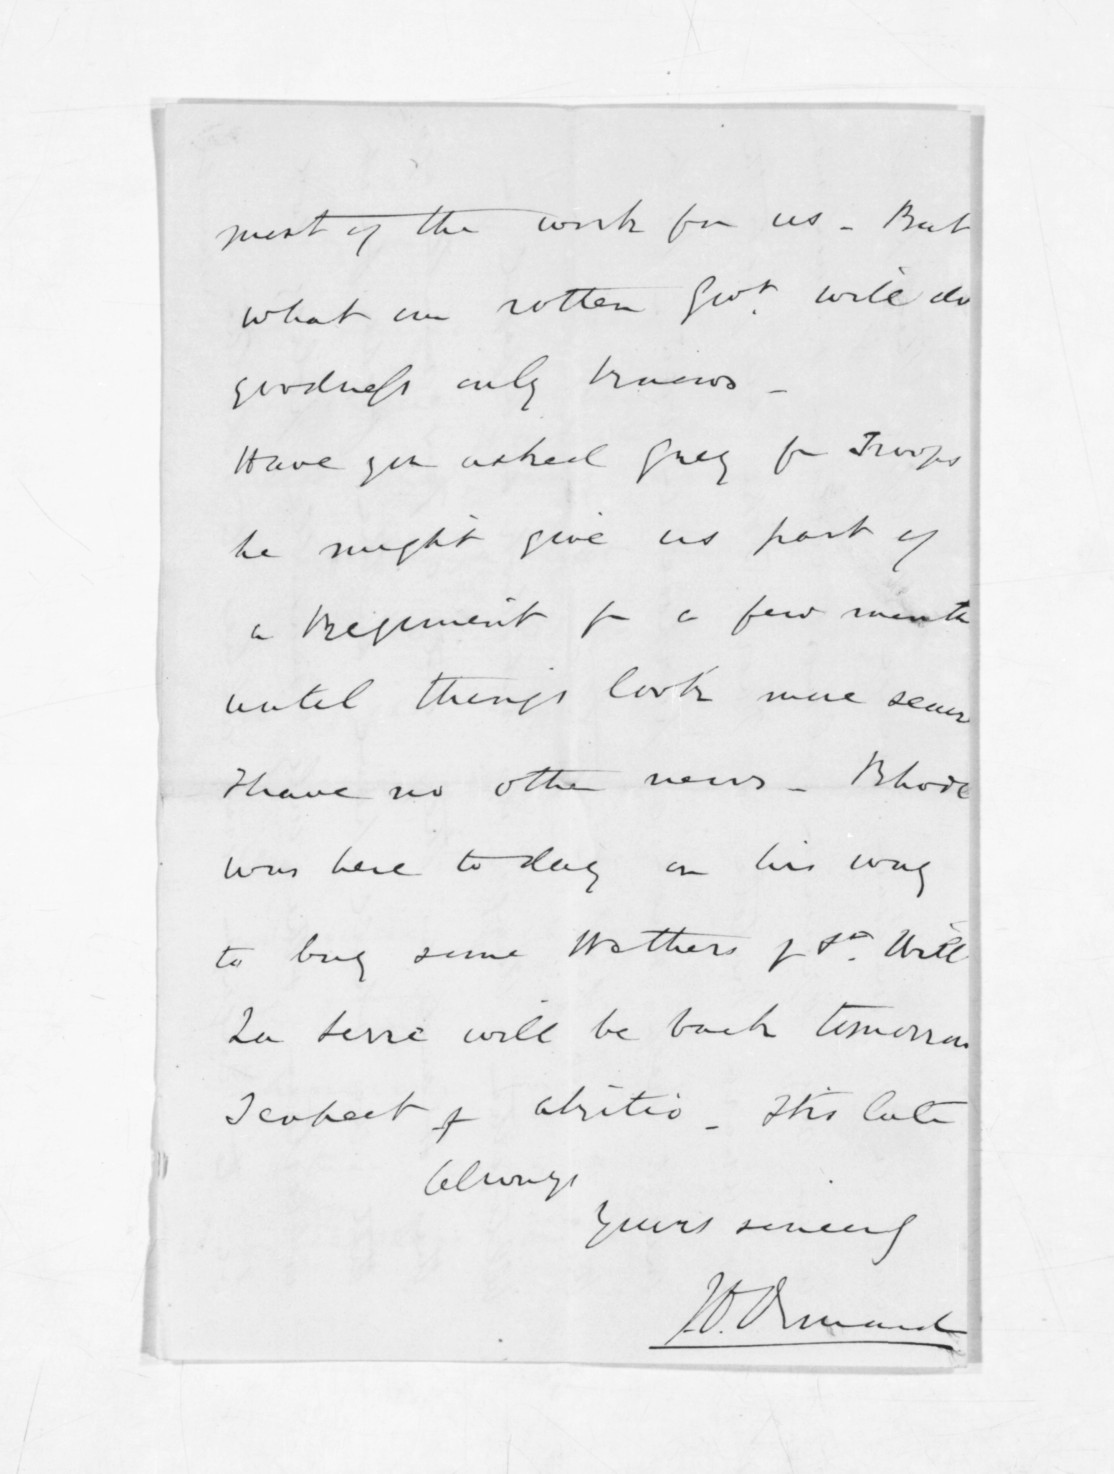 most of the work for us - But
what our rotten Govt. will do
goodness only knows -
Have you asked Grey for Troops
he might give us part of
a Regiment for a few month
until things look more secure
I have no other news - Rhode
was here to day on his way
to buy some Wethers
La Serre will be back tomorrow
I expect - Its late
Always
Yours sincerely
J.D. Ormond